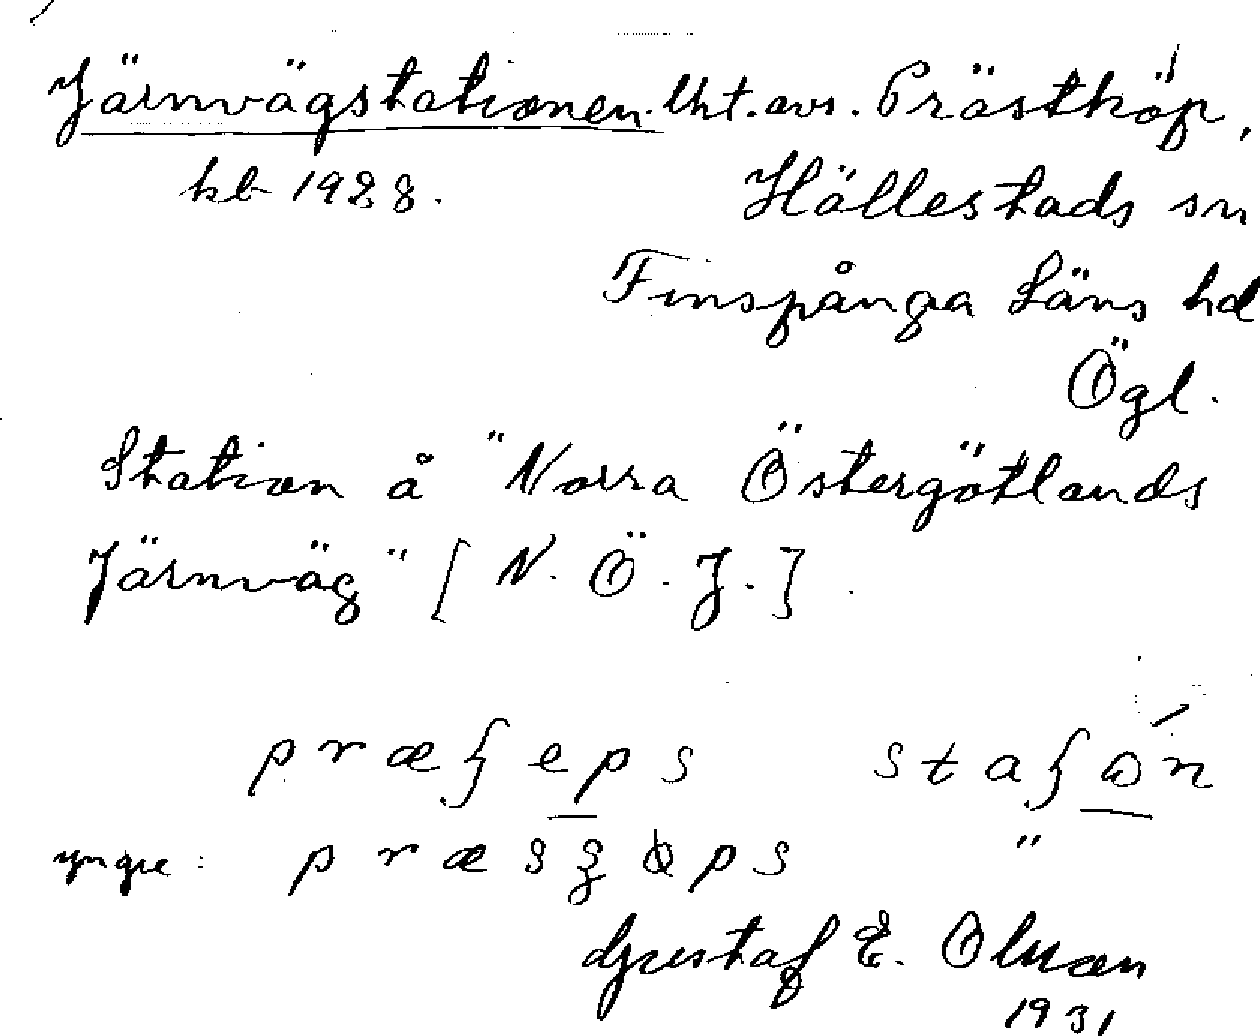 Järnvägstationen. Uht. avs. Prästköp,
kb 1928. Hällestads sn
Finspånga Läns hd
Ögl.
Station å "Norra Östergötlands
Järnväg" [N. Ö. J.].
yngre: "
Gustaf E. Olsson
1931